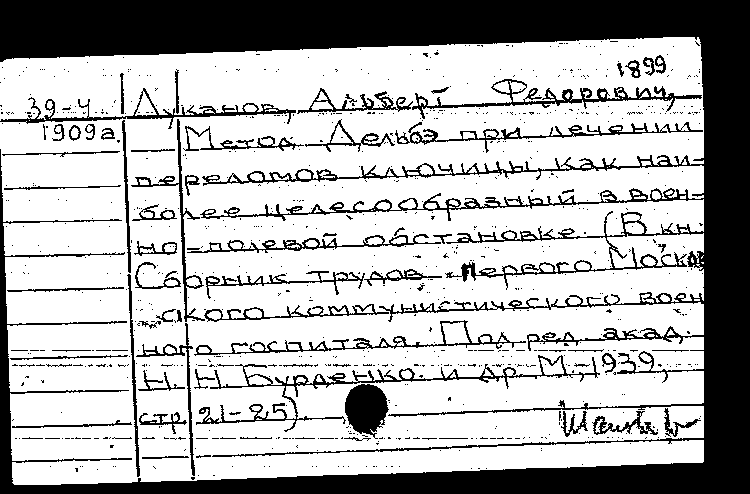 1899
39-4 Луканов, Альберт Федорович,
1909а. Метод Дельбэ при лечении
переломов ключицы, как наи-
более целесообразный в воен-
но-полевой обстановке. (В кн:
Сборник трудов первого Москов
ского коммунистического воен
ного госпиталя. Под ред. акад.
Н. Н. Бурденко и др. М., 1939,
стр. 21-25).